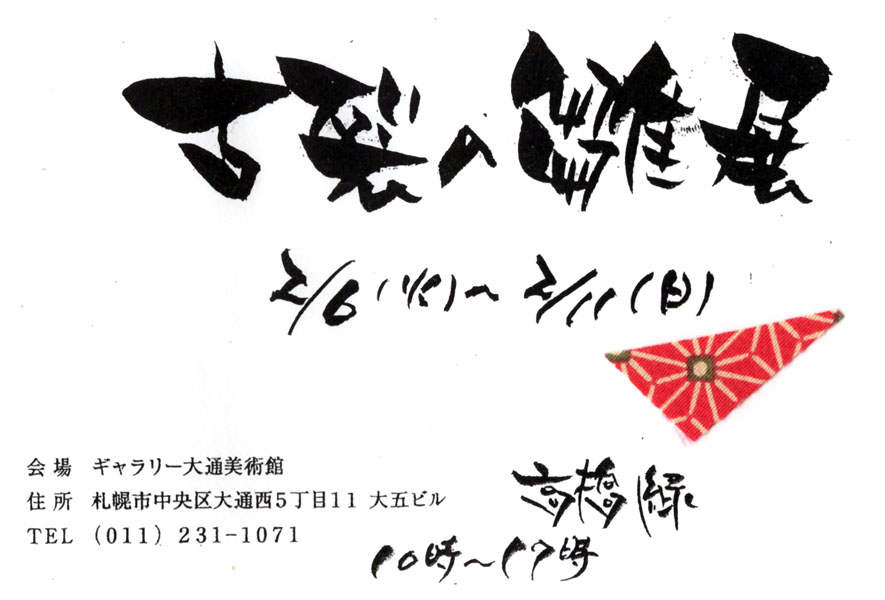 古裂の雛展
2/6(火)〜2/11(日)
会場 ギャラリー大通美術館
住所 札幌市中央区大通西5丁目11 大五ビル
TEL (011) 231-1071
高橋 緑
10時〜17時